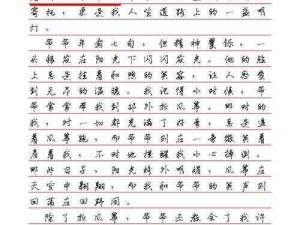 寄托，更是我人生道路上的一盏明
灯。
爷爷年逾七旬，但精神矍铄，一
头银发在阳光下闪闪发光。他的脸
上总是挂着和煦的笑容，让人感受
到无尽的温暖。我记得小时候，爷
爷常常带我到郊外放风筝。那时的
我，对一切都充满了好奇，总是追
着风筝跑，而爷爷则在一旁微笑着
看着我，不时地提醒我小心摔倒。
那些日子，阳光格外明媚，风筝在
天空中翱翔，而我和爷爷的笑声则
回荡在田野间。
除了放风筝，爷爷还教会了我许